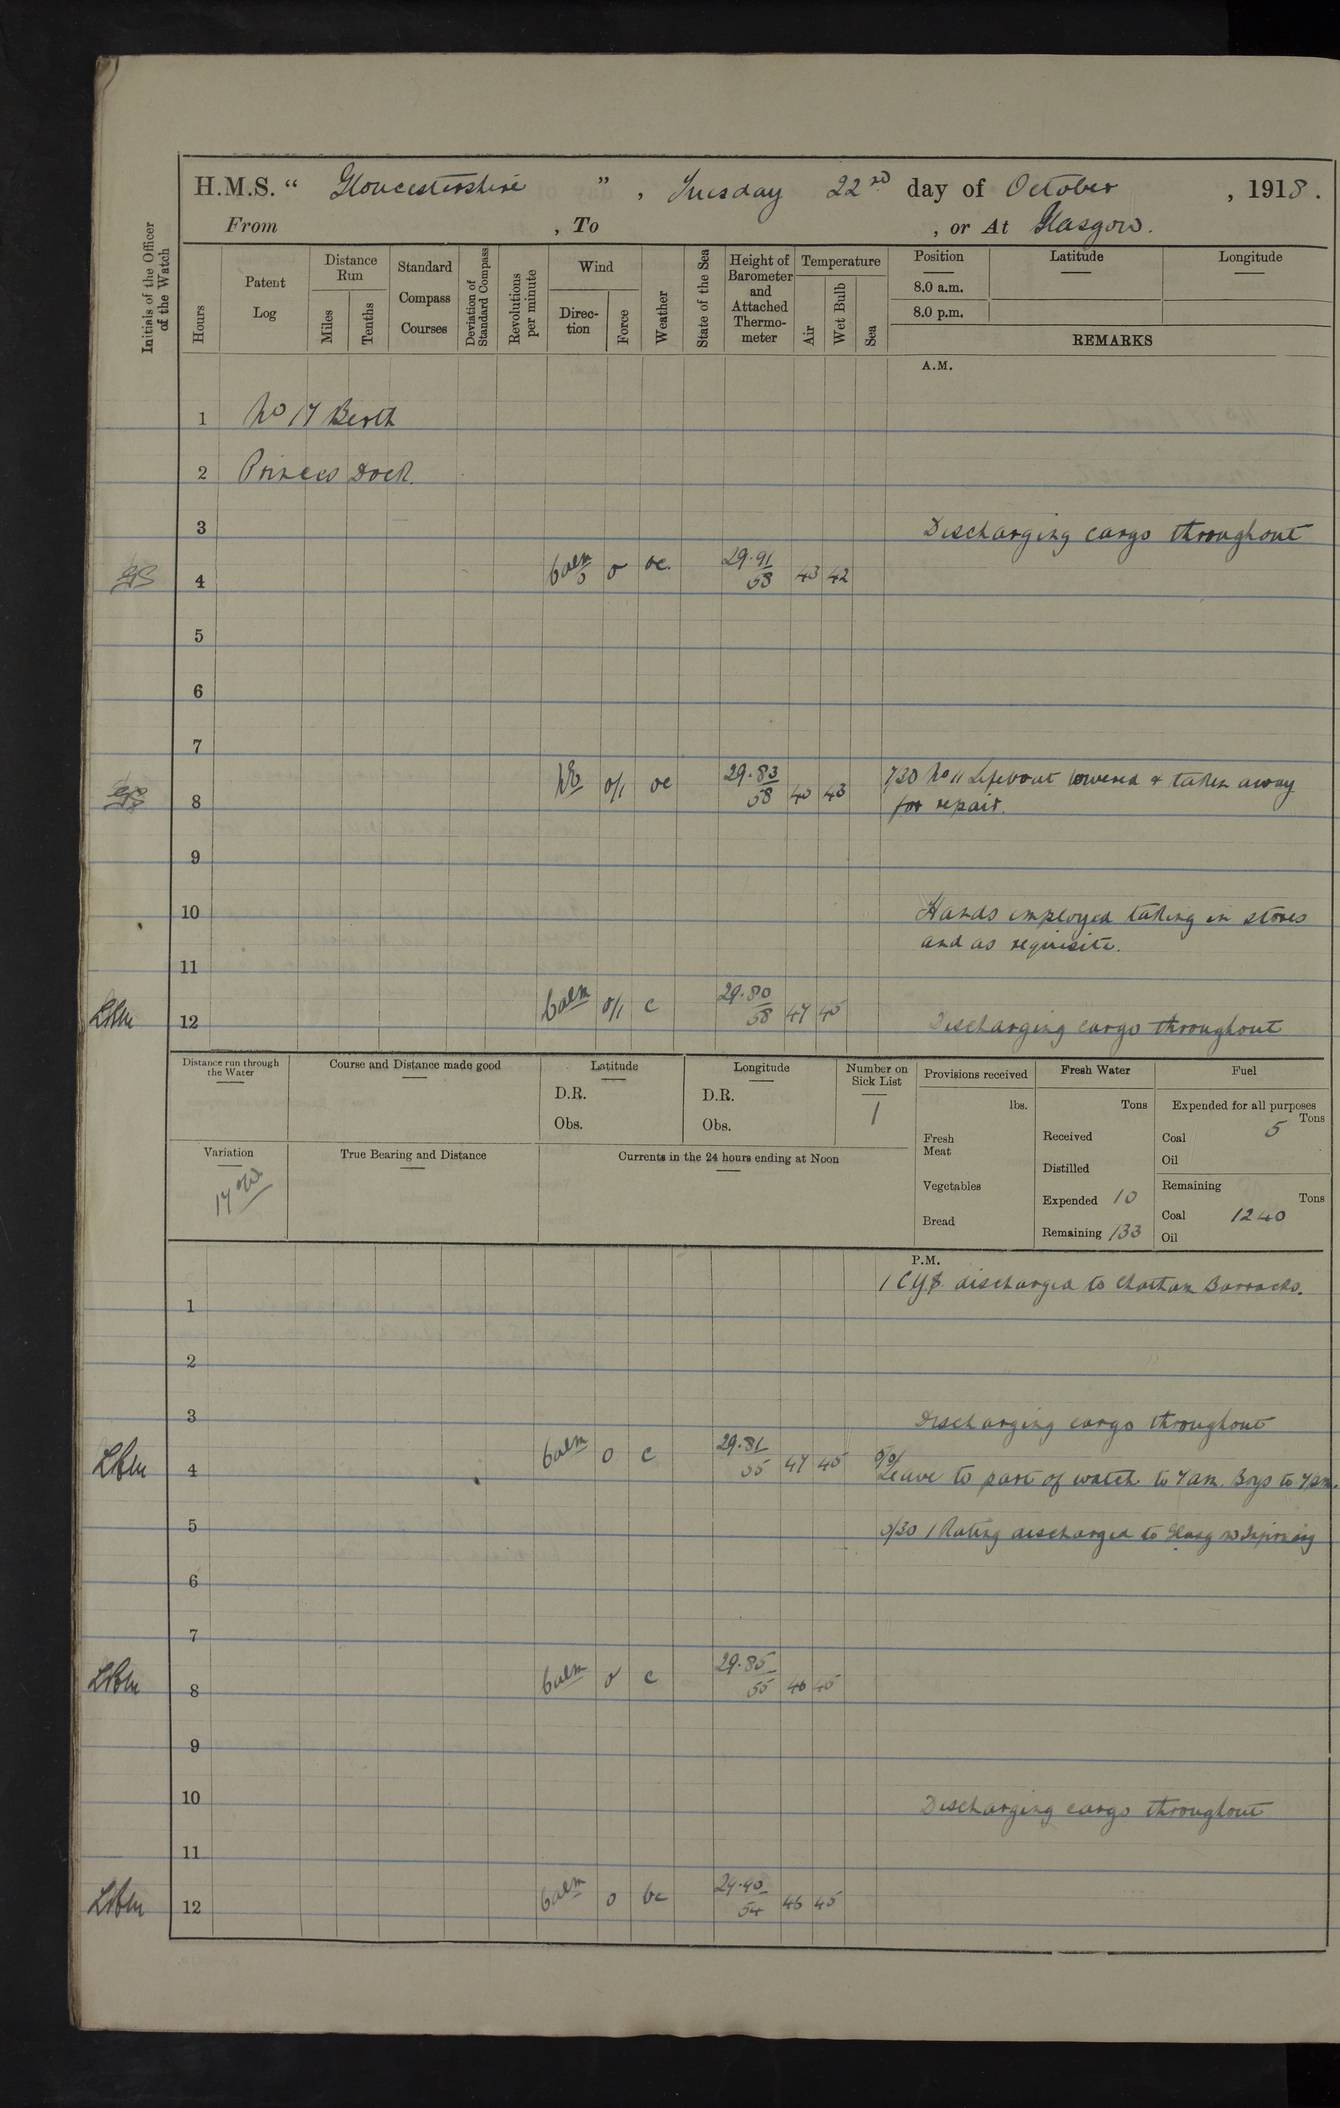 H.M.S. “ Gloucestershire ” , Tuesday 22nd day of October , 1918 .
From , To , or At Glasgow.
Initials of the Officer of the Watch
Hours
Patent Log
Distance Run
Miles
Tenths
Standard Compass Courses
Deviation of Standard Compass
Revolutions per minute
Wind
Direction
Force
Weather
State of the Sea
Height of Barometer and Attached Thermometer
Temperature
Air
Wet Bulb
Sea
Position Latitude Longitude
8.0 a.m.
8.0 p.m.
REMARKS
A.M.
1 No 17 Berth
2 Princes Dock.
3 Discharging cargo throughout
4 Calm 0 oc. 29.91 58 43 42
5
6
7
730 No 11 Lifeboat lowered & taken away
8 NE 0/1 oc 29.83 58 43 for repair.
9
10 Hands employed taking in stores
and as requisite.
11
12 Calm 0/1 c 29.80 58 47 45 Discharging cargo throughout
Distance run through the Water
Course and Distance made good
Latitude
D.R.
Obs.
Longitude
D.R.
Obs.
Number on Sick List
1
Provisions received
lbs.
Fresh Meat
Vegetables
Bread
Fresh Water
Tons
Received
Distilled
Expended 10
Remaining 133
Fuel
Expended for all purposes
Tons
Coal 5
Oil
Remaining
Tons
Coal 1240
Oil
Variation
17 °W
True Bearing and Distance
Currents in the 24 hours ending at Noon
P.M.
1 CYS discharged to Chatham Barracks.
1
2
3 Discharging cargo throughout
4 Calm 0 c 29.81 55 47 45 Leave to part of watch to 7 am. Boys to 7 pm.
5 1 Rating discharged to
6
7
8 Calm 0 c 29.85 55 46 45
9
10 Discharging cargo throughout
11
12 Calm 0 bc 54 46 45